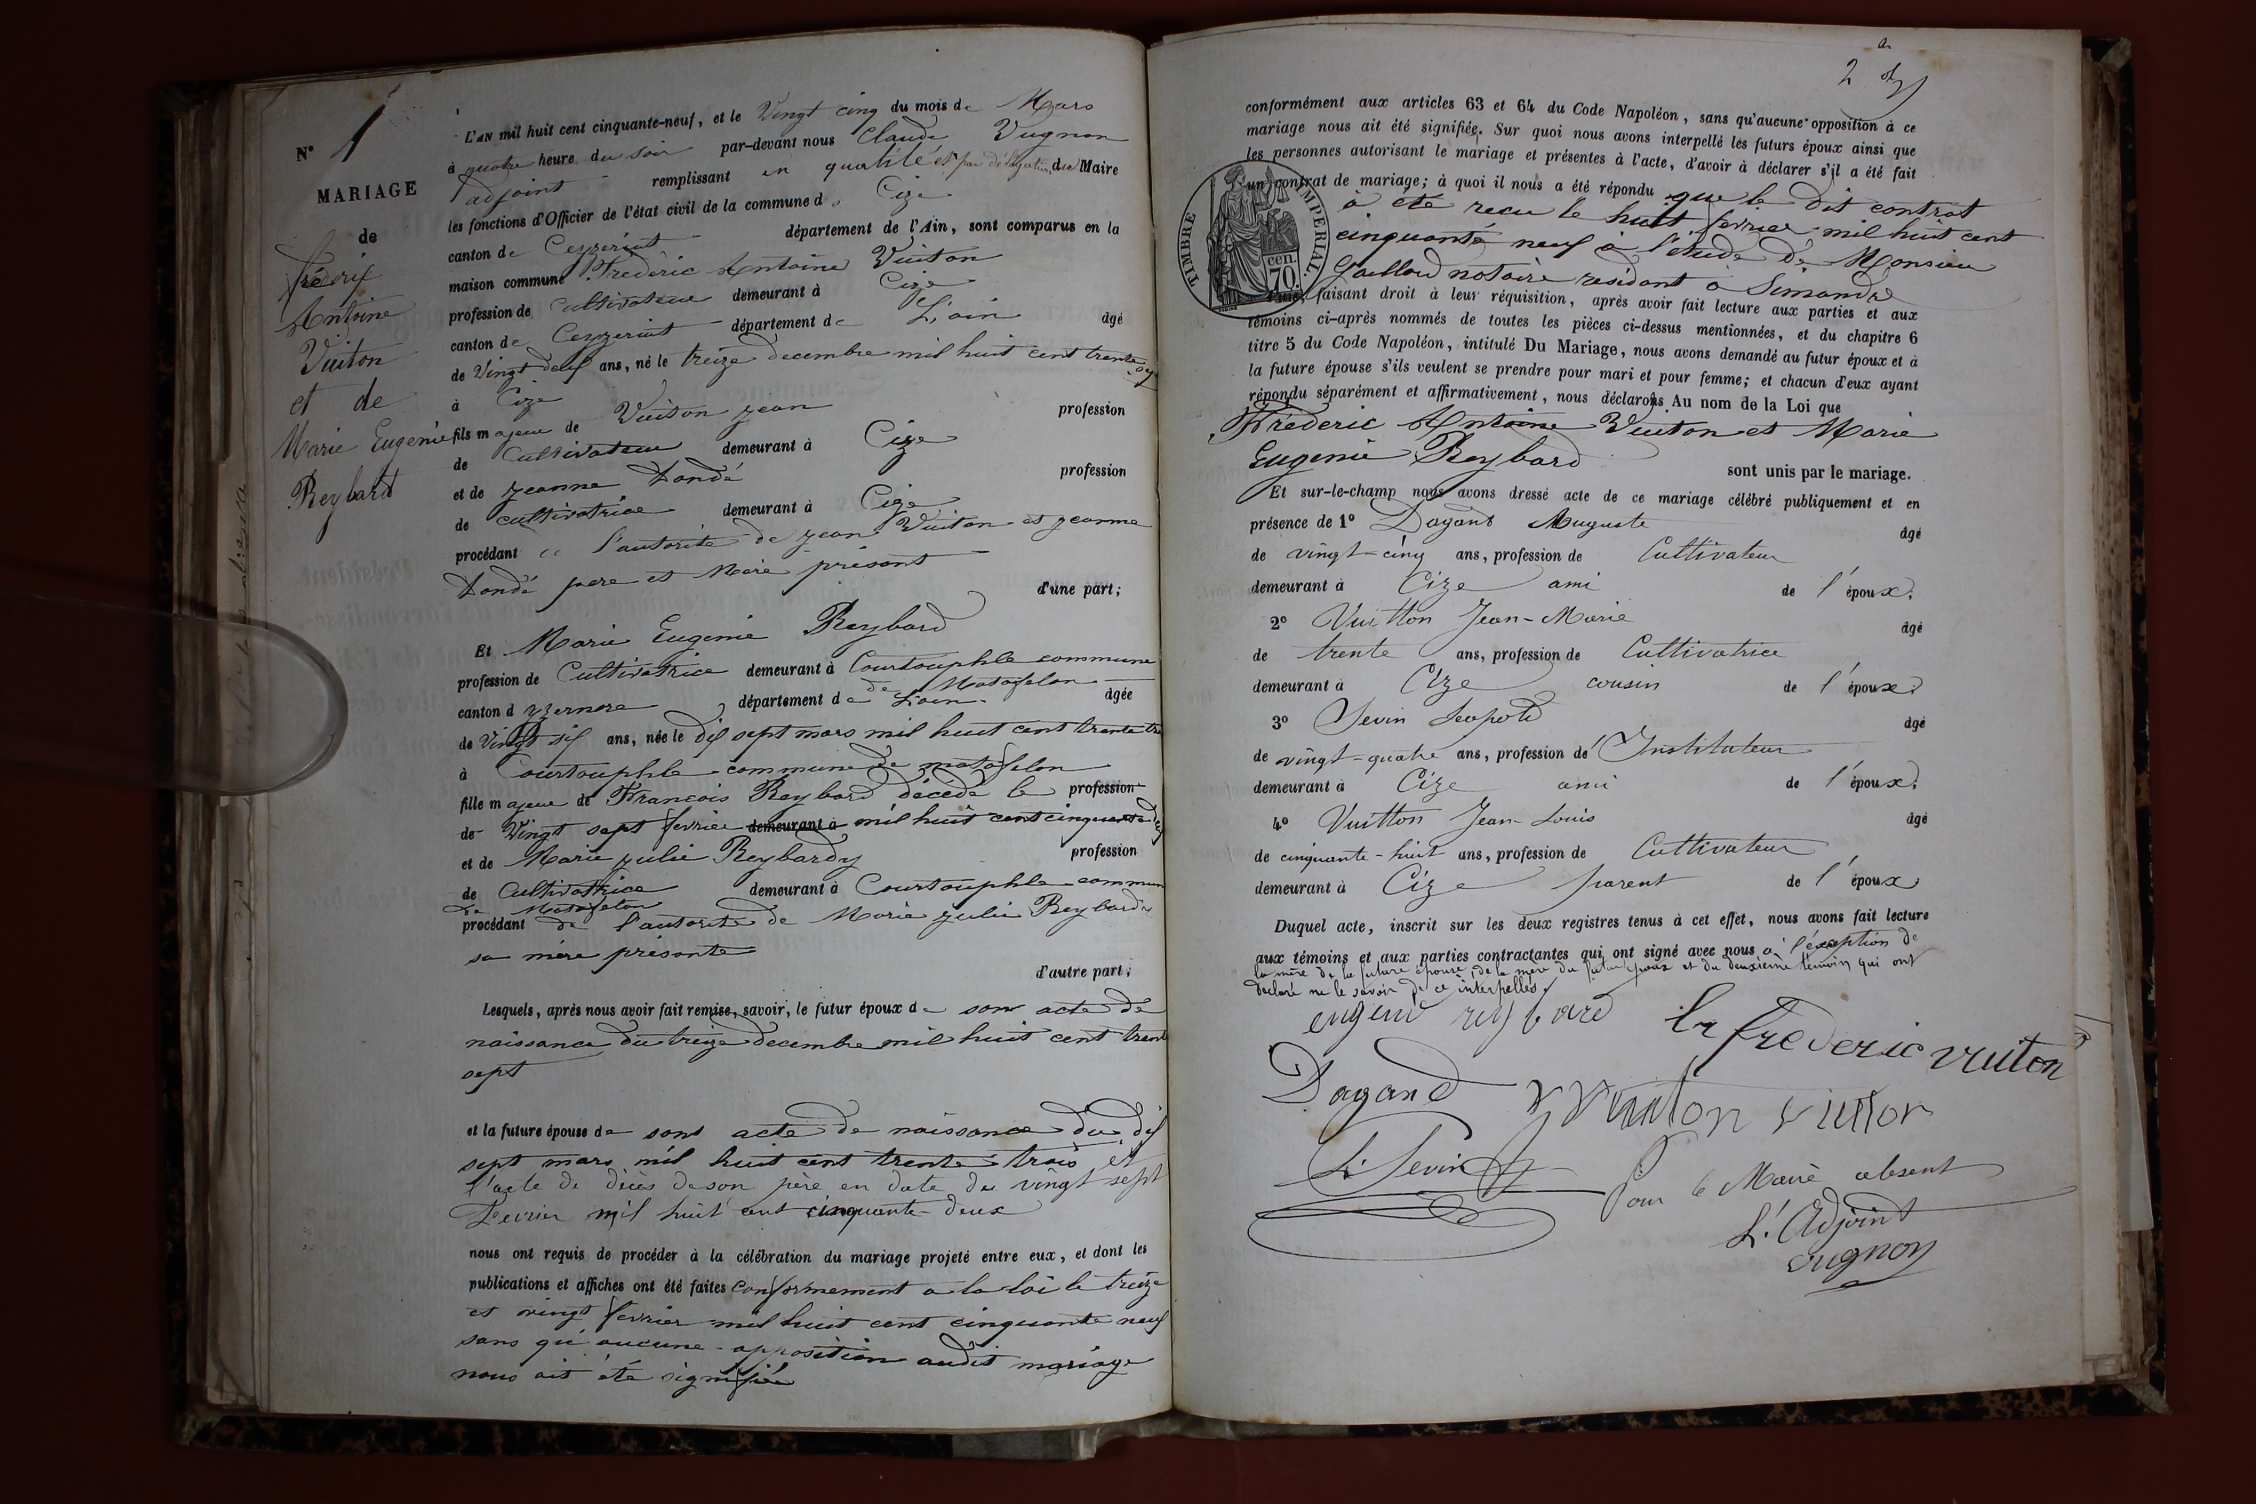 N° 1
MARIAGE
de
frédéric
Antoine
Vuiton
et de
Marie Eugenie
Reybard
L'AN mil huit cent cinquante-neuf, et le Vingt cinq du mois de Mars
à quatre heure du soir par-devant nous Claude Vugnon
adjoint remplissant en qualité et par délégation du Maire
les fonctions d'Officier de l'état civil de la commune de Cize
canton de Ceyzeriat département de l'Ain, sont comparus en la
maison commune Frédèric Antoine Vuiton
profession de Cultivateur demeurant à Cize
canton de Ceyzeriat département de L'ain âgé
de Vingt deux ans, né le treize decembre mil huit cent trente
à Cize
fils majeur de Vuiton jean profession
de Cultivateur demeurant à Cize
et de jeanne Dondé profession
de cultivatrice demeurant à Cize
procédant de l'autorité de jean Vuiton et jeanne
Dondé pere et Mere présant
d'une part;
Et Marie Eugenie Reybard
profession de Cultivatrice demeurant à Courtouphle commune
de Matafelon
canton d'yzernore département de L'ain âgée
de Vingt six ans, née le dix sept mars mil huit cent trente
à Courtouphle commune de matafelon
fille majeur de Francois Reybard décédé le profession
de Vingt sept fevrier demeurant à mil huit cent cinquante deux
et de Marie julie Reybardy profession
de Cultivatrice demeurant à Courtouphle commun
de Matafelon
procédant de l'autorité de Marie julie Reybardy
sa mère présante
d'autre part;
Lesquels, après nous avoir fait remise, savoir, le futur époux de son acte de
naissance du treize decembre mil huit cent trent
sept
et la future épouse de sont acte de naissance du dix
sept mars mil huit cent trente trois et
l'acte de décès de son père en date du vingt sept
Fevrier mil huit cent cinquante-deux
nous ont requis de procéder à la célébration du mariage projeté entre eux, et dont les
publications et affiches ont été faites conformement a la loi le treize
et vingt fevrier mil huit cent cinquante neuf
sans qu'aucune opposition audit mariage
nous ait été signifiée
2
conformément aux articles 63 et 64 du Code Napoléon, sans qu'aucune opposition à ce
mariage nous ait été signifiée. Sur quoi nous avons interpellé les futurs époux ainsi que
les personnes autorisant le mariage et présentes à l'acte, d'avoir à déclarer s'il a été fait
un contrat de mariage; à quoi il nous a été répondu que le dit contrat
à été recu le huit fevrier mil huit cent
cinquante neuf à l'étude de Monsieur
Gaillard notaire residant à Simandre
TIMBRE IMPERIAL.
70. cen.
faisant droit à leur réquisition, après avoir fait lecture aux parties et aux
témoins ci-après nommés de toutes les pièces ci-dessus mentionnées, et du chapitre 6
titre 5 du Code Napoléon, intitulé Du Mariage, nous avons demandé au futur époux et à
la future épouse s'ils veulent se prendre pour mari et pour femme; et chacun d'eux ayant
répondu séparément et affirmativement, nous déclarons Au nom de la Loi que
Frédéric Antoine Vuiton et Marie
Eugenie Reybard sont unis par le mariage.
Et sur-le-champ nous avons dressé acte de ce mariage célébré publiquement et en
présence de 1° Dagand Auguste âgé
de vingt-cinq ans, profession de Cultivateur
demeurant à Cize ami de l'époux.
2° Vuitton Jean-Marie âgé
de trente ans, profession de Cultivatrice
demeurant à Cize cousin de l'époux.
3° Sevin Léopold âgé
de vingt-quatre ans, profession de Instituteur
demeurant à Cize ami de l'époux.
4° Vuitton Jean-Louis âgé
de cinquante-huit ans, profession de Cultivateur
demeurant à Cize parent de l'époux
Duquel acte, inscrit sur les deux registres tenus à cet effet, nous avons fait lecture
aux témoins et aux parties contractantes qui ont signé avec nous à l'éxception de
la mère de la future épouse, de la mère du futur époux et du deuxième témoin qui ont
déclaré ne le savoir de ce interpellés.
eugenie reybard
frederic vuiton
Dagand
vuiton victor
L. Sevin
Pour le Maire absent
L'Adjoint
vugnon